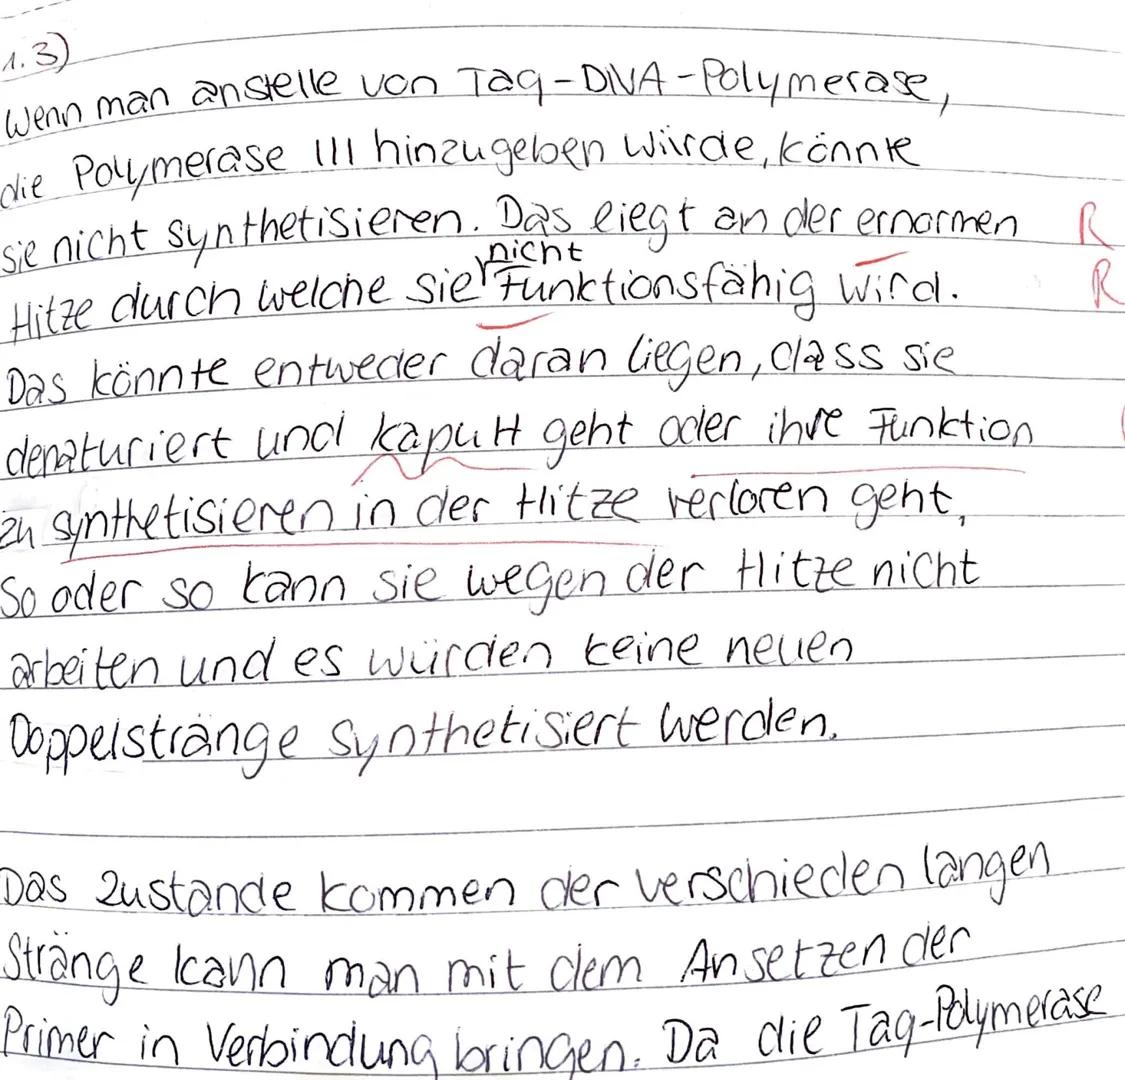 1.3)
Wenn man anstelle von Taq-DNA-Polymerase,
die Polymerase III hinzugeben würde, könnte
sie nicht synthetisieren. Das liegt an der ernormen R
nicht
Hitze durch welche sie Funktionsfähig wird. R
Das könnte entweder daran liegen, dass sie
denaturiert und kaputt geht oder ihre Funktion
zu synthetisieren in der Hitze verloren geht,
So oder so kann sie wegen der Hitze nicht
arbeiten und es würden keine neuen
Doppelstränge synthetisiert werden.
Das Zustande kommen der verschieden langen
Stränge kann man mit dem Ansetzen der
Primer in Verbindung bringen. Da die Taq-Polymerase